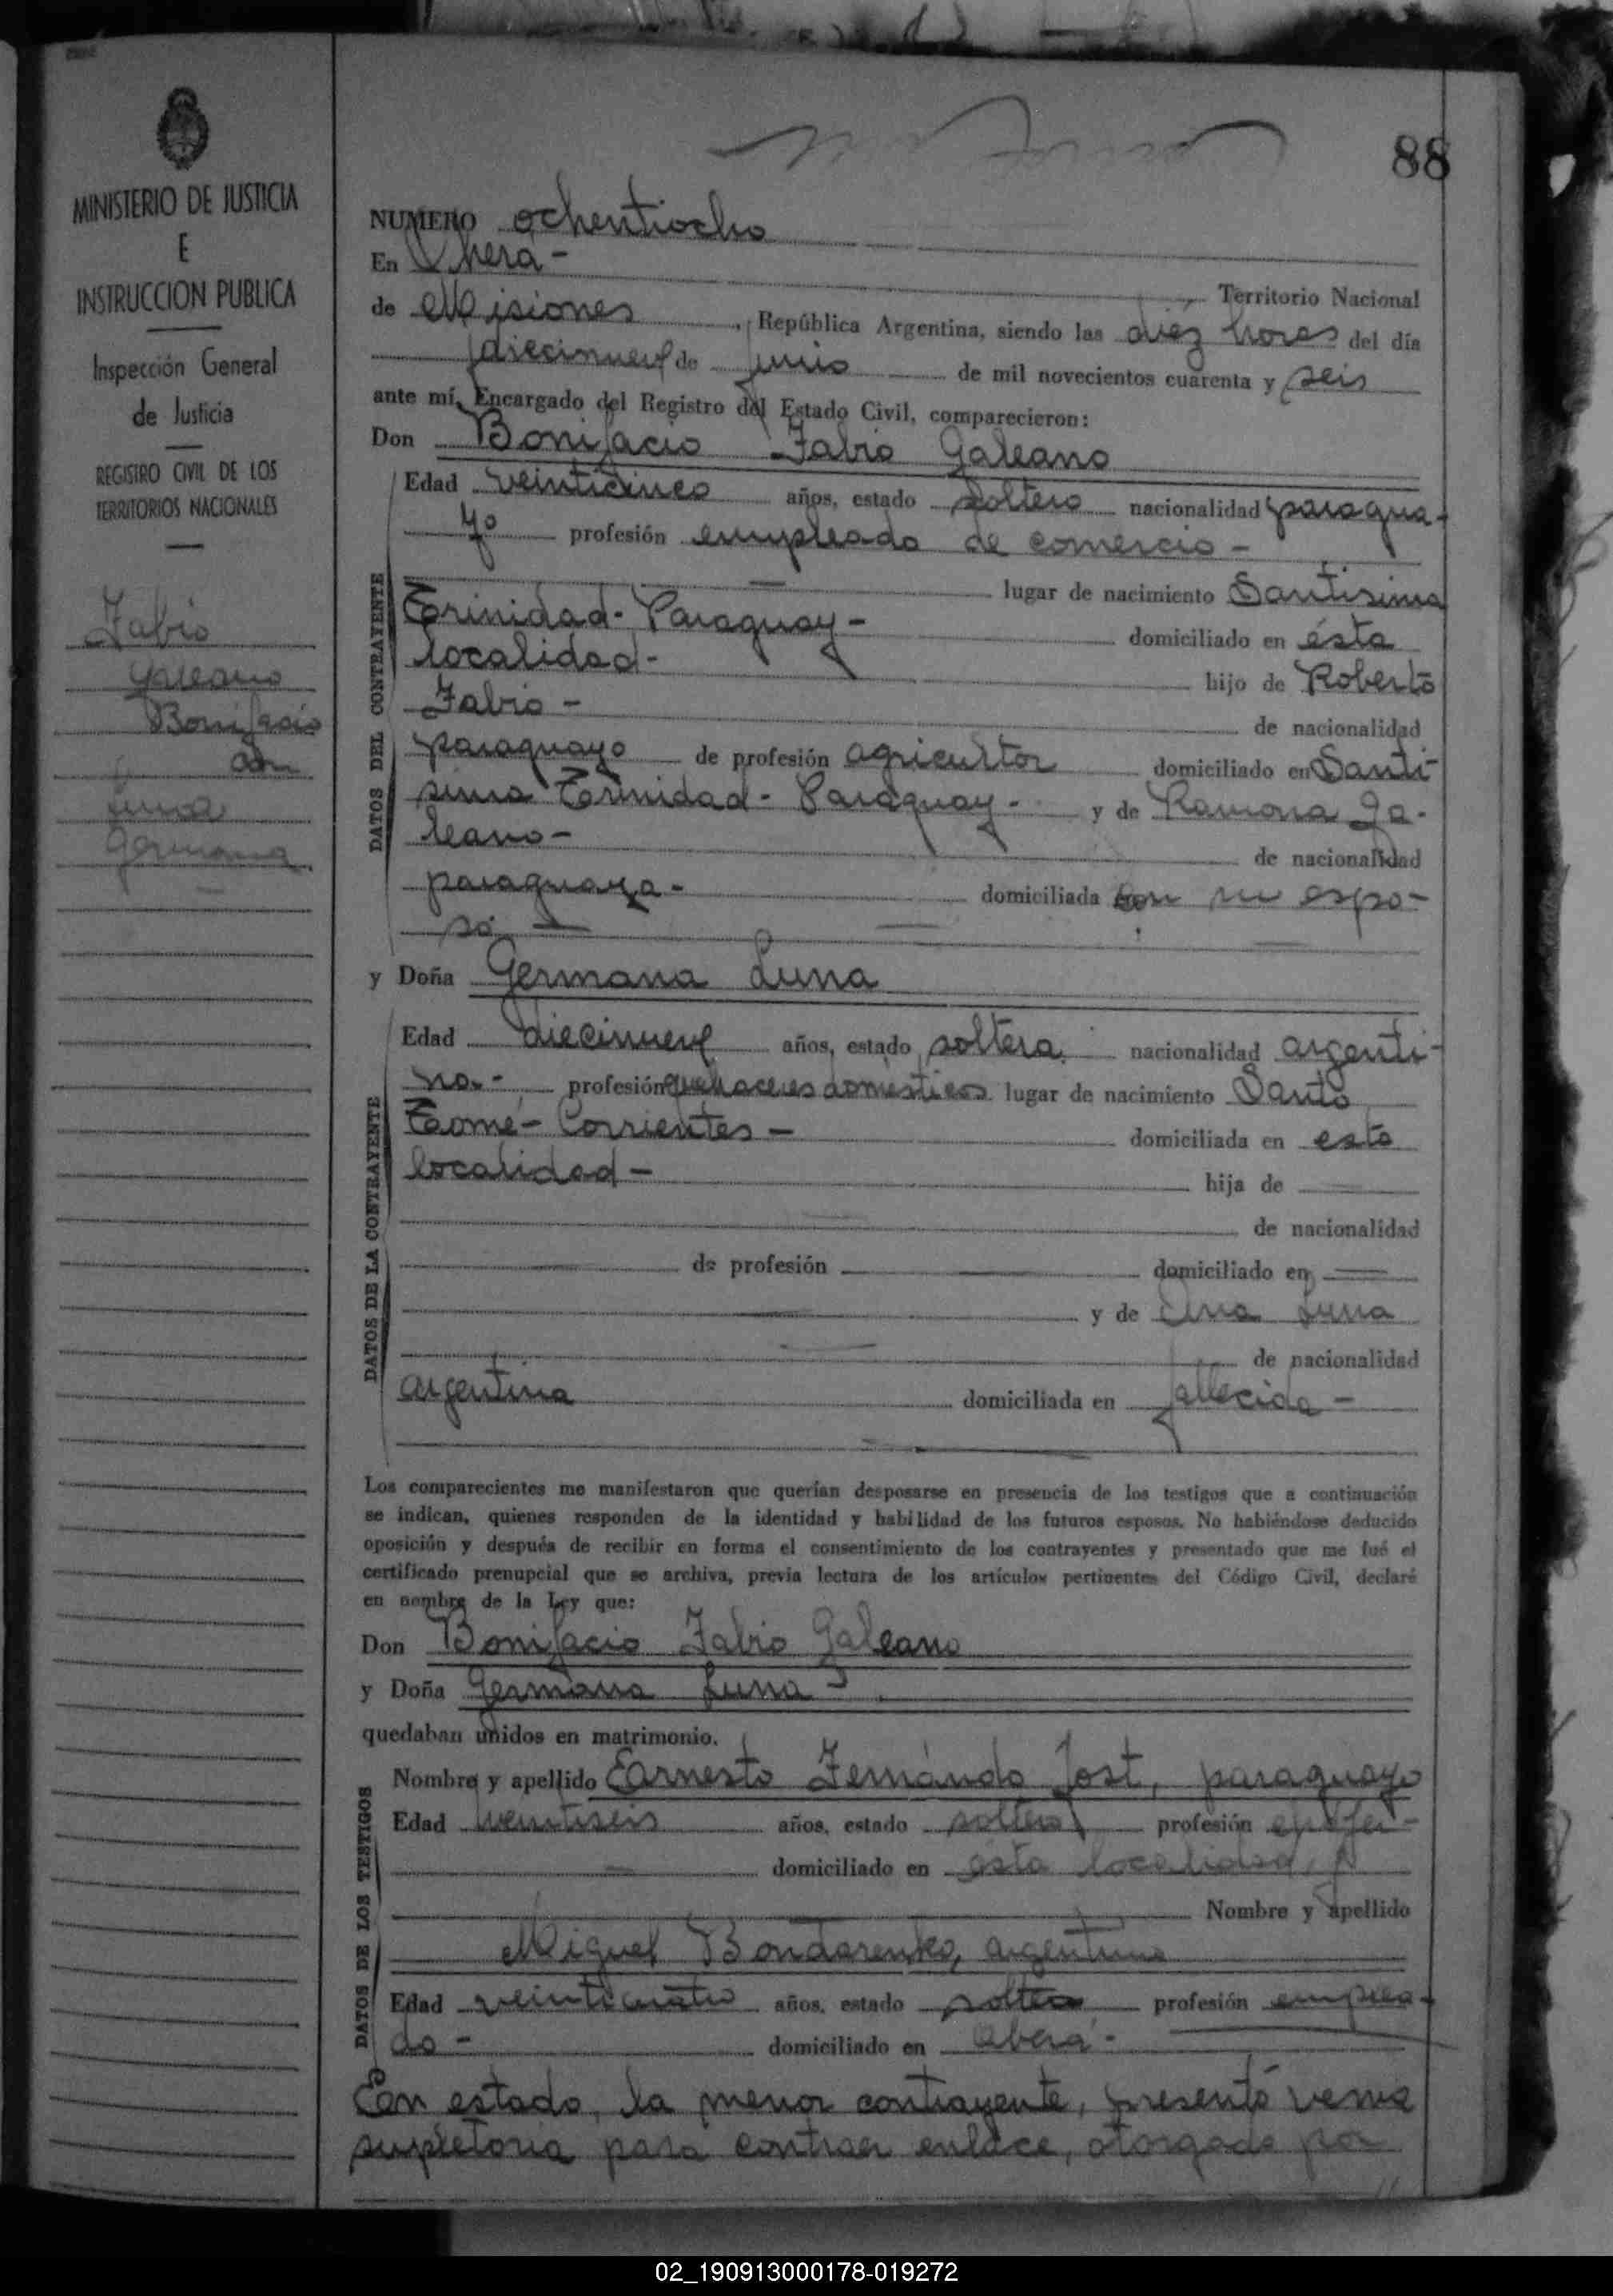 88
MINISTERIO DE JUSTICIA
E
INSTRUCCION PUBLICA
Inspección General
de Justicia
REGISTRO CIVIL DE LOS
TERRITORIOS NACIONALES
Fabio
Galeano
Bonifacio
con
Luna
Germana
NUMERO ochentiocho
En Oberá -
Territorio Nacional
de Misiones, República Argentina, siendo las diez horas del día
diecinueve de junio de mil novecientos cuarenta y seis
ante mí, Encargado del Registro del Estado Civil, comparecieron:
Don Bonifacio Fabio Galeano
DATOS DEL CONTRAYENTE
Edad veinticinco años, estado soltero nacionalidad paragua-
yo profesión empleado de comercio -
lugar de nacimiento Santisima
Trinidad - Paraguay - domiciliado en ésta
localidad - hijo de Roberto
Fabio - de nacionalidad
paraguayo de profesión agricultor domiciliado en Santi-
sima Trinidad - Paraguay - y de Ramona Ga-
leano - de nacionalidad
paraguaya - domiciliada con su espo-
so
y Doña Germana Luna
DATOS DE LA CONTRAYENTE
Edad diecinueve años, estado soltera nacionalidad argenti-
na - profesión quehaceres domésticos lugar de nacimiento Santo
Tomé - Corrientes - domiciliada en esta
localidad - hija de
de nacionalidad
de profesión domiciliado en
y de Ana Luna
de nacionalidad
argentina domiciliada en fallecida -
Los comparecientes me manifestaron que querían desposarse en presencia de los testigos que a continuación
se indican, quienes responden de la identidad y habilidad de los futuros esposos. No habiéndose deducido
oposición y después de recibir en forma el consentimiento de los contrayentes y presentado que me fué el
certificado prenupcial que se archiva, previa lectura de los artículos pertinentes del Código Civil, declaré
en nombre de la Ley que:
Don Bonifacio Fabio Galeano
y Doña Germana Luna -
quedaban unidos en matrimonio.
DATOS DE LOS TESTIGOS
Nombre y apellido Ernesto Fernándo Jost, paraguayo
Edad veintiseis años, estado soltero profesión chófer -
domiciliado en ésta localidad, y
Nombre y apellido
Miguel Bondarenko, argentino
Edad veinticuatro años, estado soltero profesión emplea-
do - domiciliado en Oberá -
En estado, la menor contrayente, presentó venia
supletoria para contraer enlace, otorgada por
02_190913000178-019272